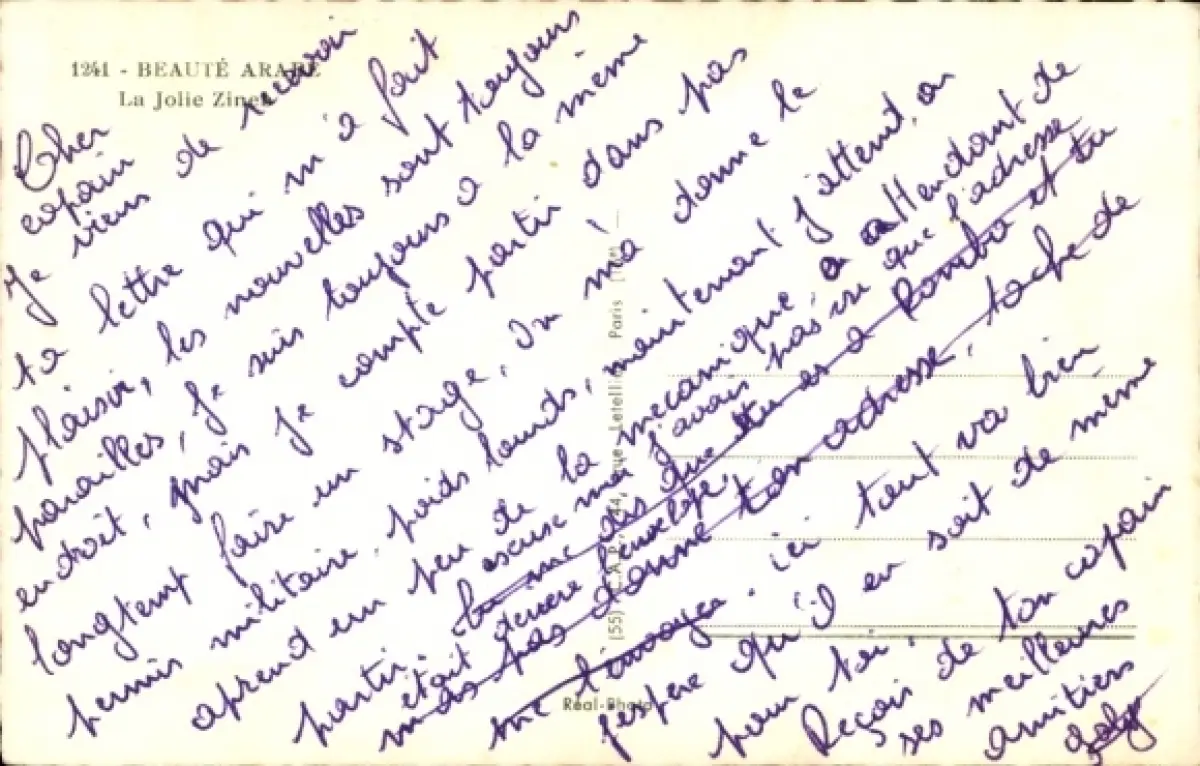 1241 - BEAUTÉ ARABE
La Jolie Zineb
Cher
copain
Je viens de recevoir
ta lettre qui m'a fait
plaisir, les nouvelles sont toujours
pareilles, je suis toujours a la même
endroit, mais je compte partir dans pas
longtemp faire un stage, on m'a donné le
permis militaire, poids lourds, maintenant j'attent, on
aprend un peu de la mecanique, en attendant de
partir. escuse moi, j'avais pas vu que l'adresse
était derière l'envelope,
tu me dis que tu es a et tu
m'as pas donné ton adresse, tache de
me l'envoyer. ici tout va bien
j'espère qu'il en soit de même
pour toi,
Reçois de ton copain
ses meilleures
amitiés
Réal-Photo
rue Letellier Paris